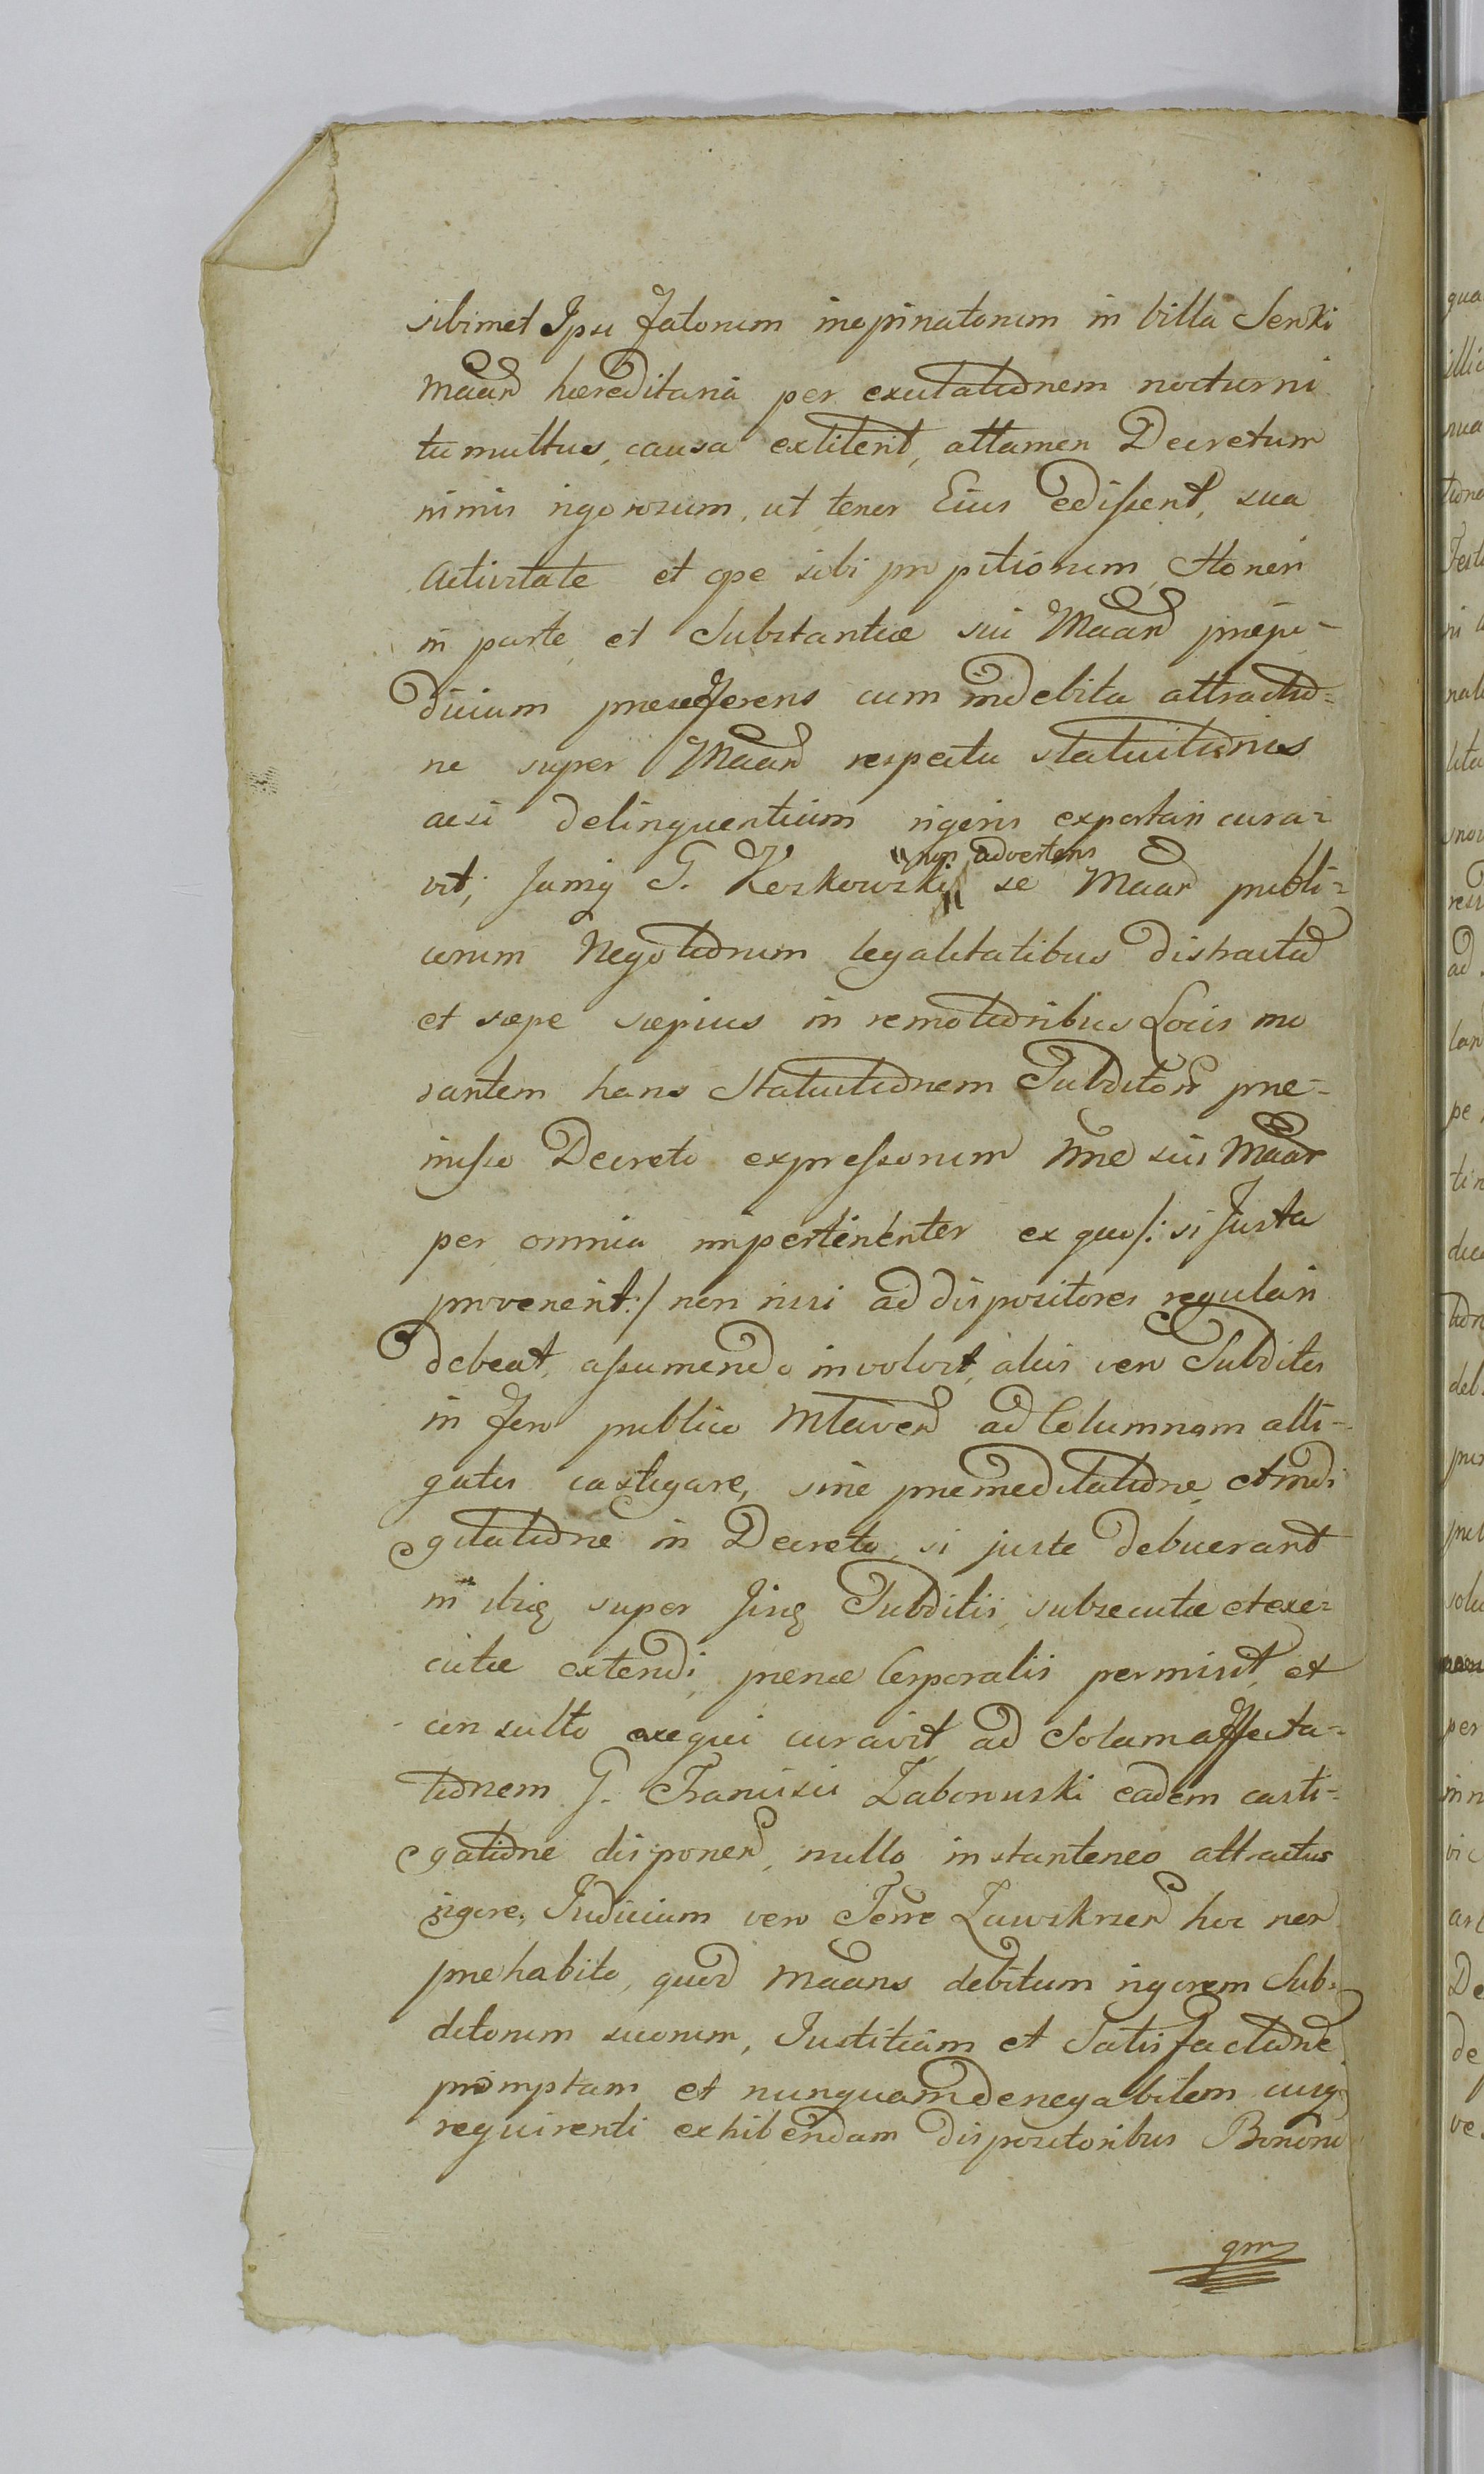 sibimet Ipsi fatorum inopinatorum in Villa Senki
Maan̄ hæreditaria per excitationem nocturni
tumultus, causa extiterit, attamen Decretum
nimis rigorosum, ut tenor Eius edisserit, sua
activitate et ope sibi propitiorum, Honori
in parte et Substantiæ sui Maan̄ præju-
dicium præseferens cum indebita attractio-
ne super Maan̄ respectu statuitionis
acsi delinquentium rigeris exportari cura-
vit, Jamq G. Keszkowski non advertens se Maan̄ publi-
corum Negotiorum legalitatibus distractū
et sæpe sæpius in remotioribus Locis mo
rantem hanc Statuitionem Subditoȓ præ-
misso Decreto expressorum nne sui Maan̄
per omnia impertinenter ex quo /: si Justa
provenerit :/ non nisi ad dispositores regulari
debeat, assumendo involvit, aliis vero Subditis
in foro publico Mlaven̄ ad Columnam alli-
gatis castigare, sine præmeditatione, et indi
gitatione in Decreto, si juste debuerant
in itiq super Jinq Subditis, subsecutæ et exe-
cutæ extendi, pænæ Corporalis permisit, et
consulto exequi curavit ad Solam affecta-
tionem G. Francisci Zaborowski eadem casti-
gatione disponen̄, nullo instanteneo attractus
rigore, Judicium vero Terre Zawskrzen̄ hoc non
præhabito, quod Maans debitum rigorem Sub-
ditorum suorum, Justitiam et Satisfactionē
promptam et nunquam denegabilem cuiq
requirenti exhibendam dispositoribus Bonorū
qm